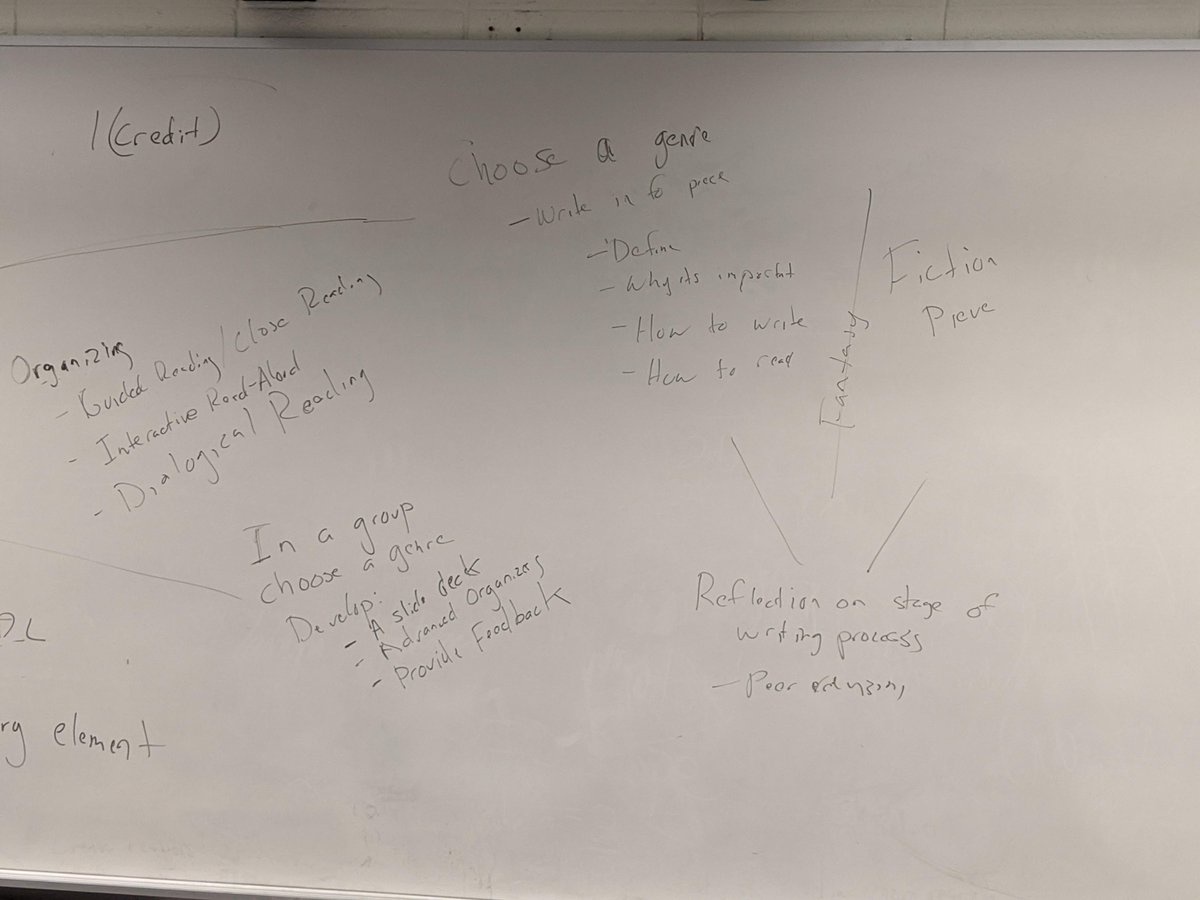 1 (Credit)
Organizing
- Guided Reading/Close Reading
- Interactive Read-Aloud
- Dialogical Reading
In a group
choose a genre
Develop:
- A slide deck
- Advanced Organizers
- Provide Feedback
element
Choose a genre
- Write info piece
- Define
- Why its importnt
- How to write
- How to read
Fantasy
Fiction
Pieve
Reflection on stage of
writing process
- Peer